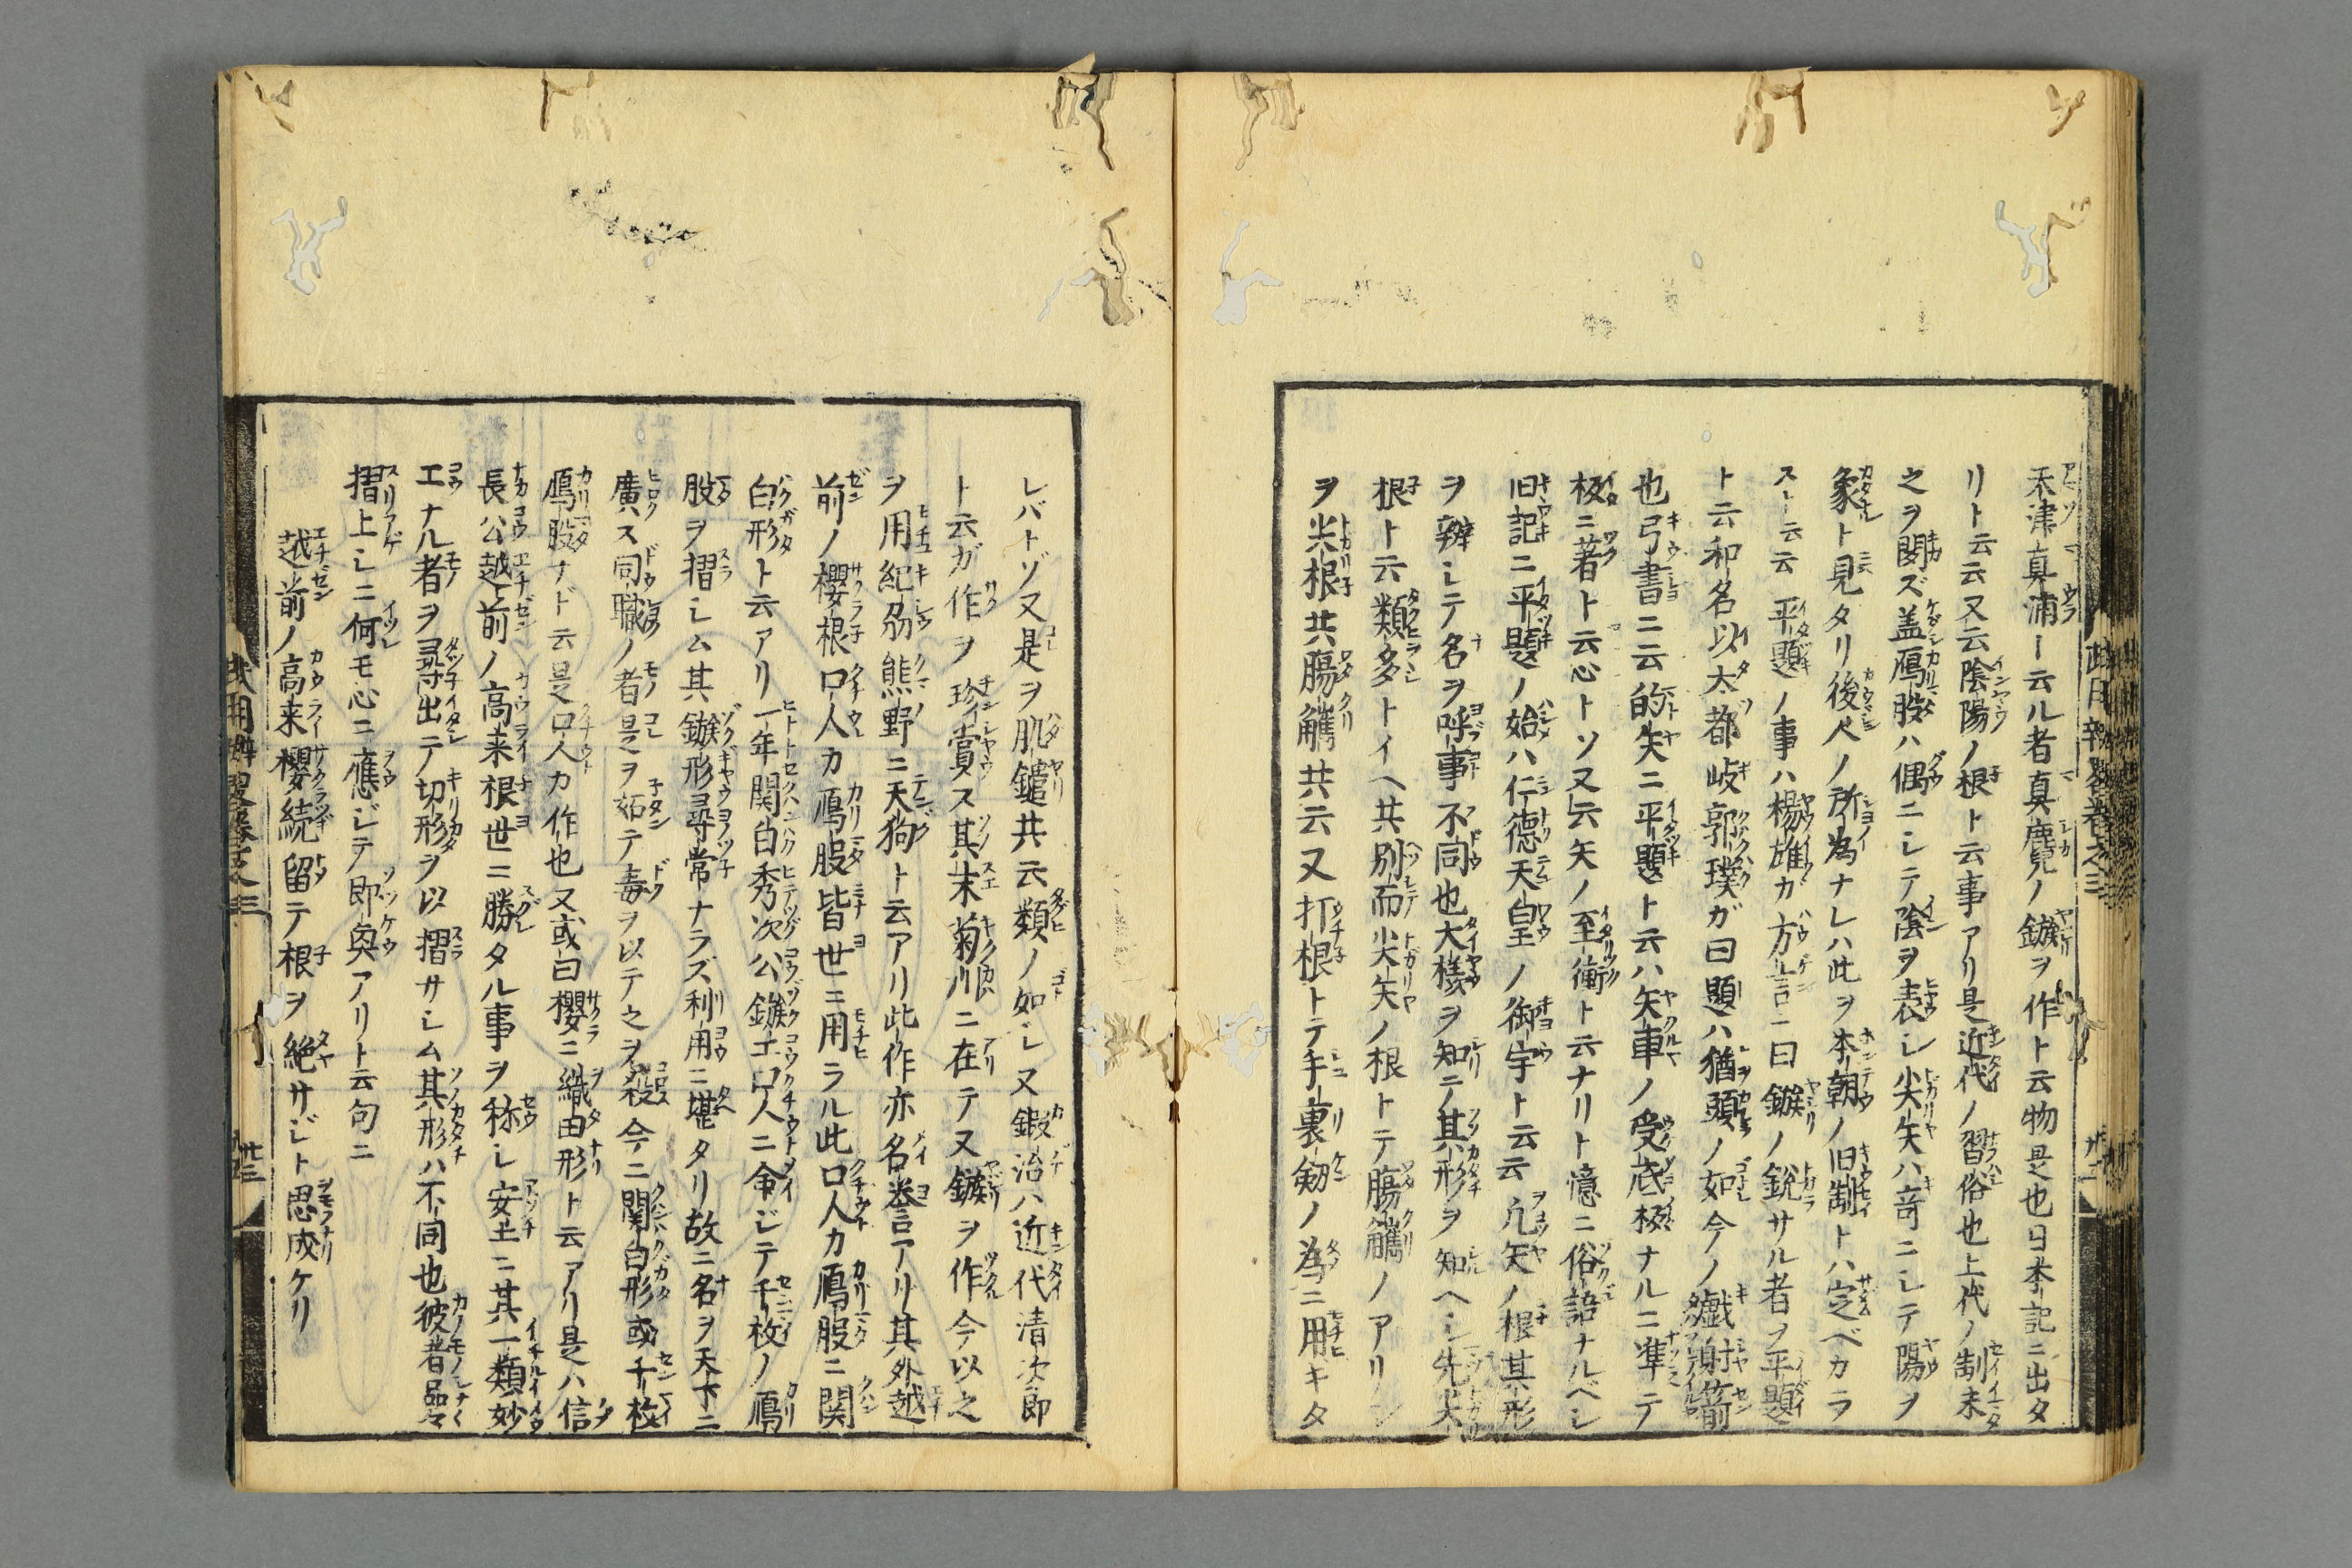 天津真浦ト云ル者真麛ノ鏃ヲ作ト云物是也日本記ニ出タ
リト云云又云陰陽ノ根ト云事アリ是近代ノ習俗也上代ノ制未
之ヲ聞ズ盖鴈股ハ偶ニシテ陰ヲ表シ尖矢ハ奇ニシテ陽ヲ
象ト見タリ後人ノ所為ナレハ此ヲ本朝ノ旧制トハ定ベカラ
ズト云云平題ノ事ハ楊雄カ方言ニ曰鏃ノ鋭サル者ヲ平題
ト云和名以太都岐郭璞ガ曰題ハ猶頭ノ如今ノ戯射箭
也弓書ニ云的矢ニ平題ト云ハ矢車ノ受底板ナルニ準テ
板ニ著ト云心トソ又云矢ノ至衝ト云ナリト憶ニ俗語ナルベシ
旧記ニ平題ノ始ハ仁德天皇ノ御宇ト云云凡矢ノ根其形
ヲ辨シテ名ヲ呼事不同也大様ヲ知テ其形ヲ知ヘシ先尖
根ト云類多トイヘ共別而尖矢ノ根トテ膓觿ノアリ
ヲ尖根共膓觿共云又打根トテ手裏剱ノ為ニ用キタ
武用辨畧巻之三
レバトゾ又是ヲ肌鑓共云類ノ如シ又鍛冶ハ近代清次郎
ト云ガ作ヲ珍賞ス其末菊川ニ在テ又鏃ヲ作今以之
ヲ用紀刕熊野ニ天狗ト云アリ此作亦名誉アリ其外越
前ノ櫻根口人カ鴈股皆世ニ用ラル此口人カ鴈股ニ関
白形ト云アリ一年関白秀次公鏃工口人ニ命ジテ千枚ノ鴈
股ヲ摺シム其鏃形尋常ナラズ利用ニ堪タリ故ニ名ヲ天下ニ
廣ス同職ノ者是ヲ妬テ毒ヲ以テ之ヲ殺今ニ関白形或千枚
鴈股ナド云是口人カ作也又或曰櫻ニ織田形ト云アリ是ハ信
長公越前ノ高来根世ニ勝タル事ヲ称シ安土ニ其一類妙
工ナル者ヲ尋出テ切形ヲ以摺サシム其形ハ不同也彼者品々
摺上シニ何モ心ニ應ジテ即興アリト云句ニ
越前ノ高来櫻続留テ根ヲ絶サジト思成ケリ
武用辨畧巻之三
廿三